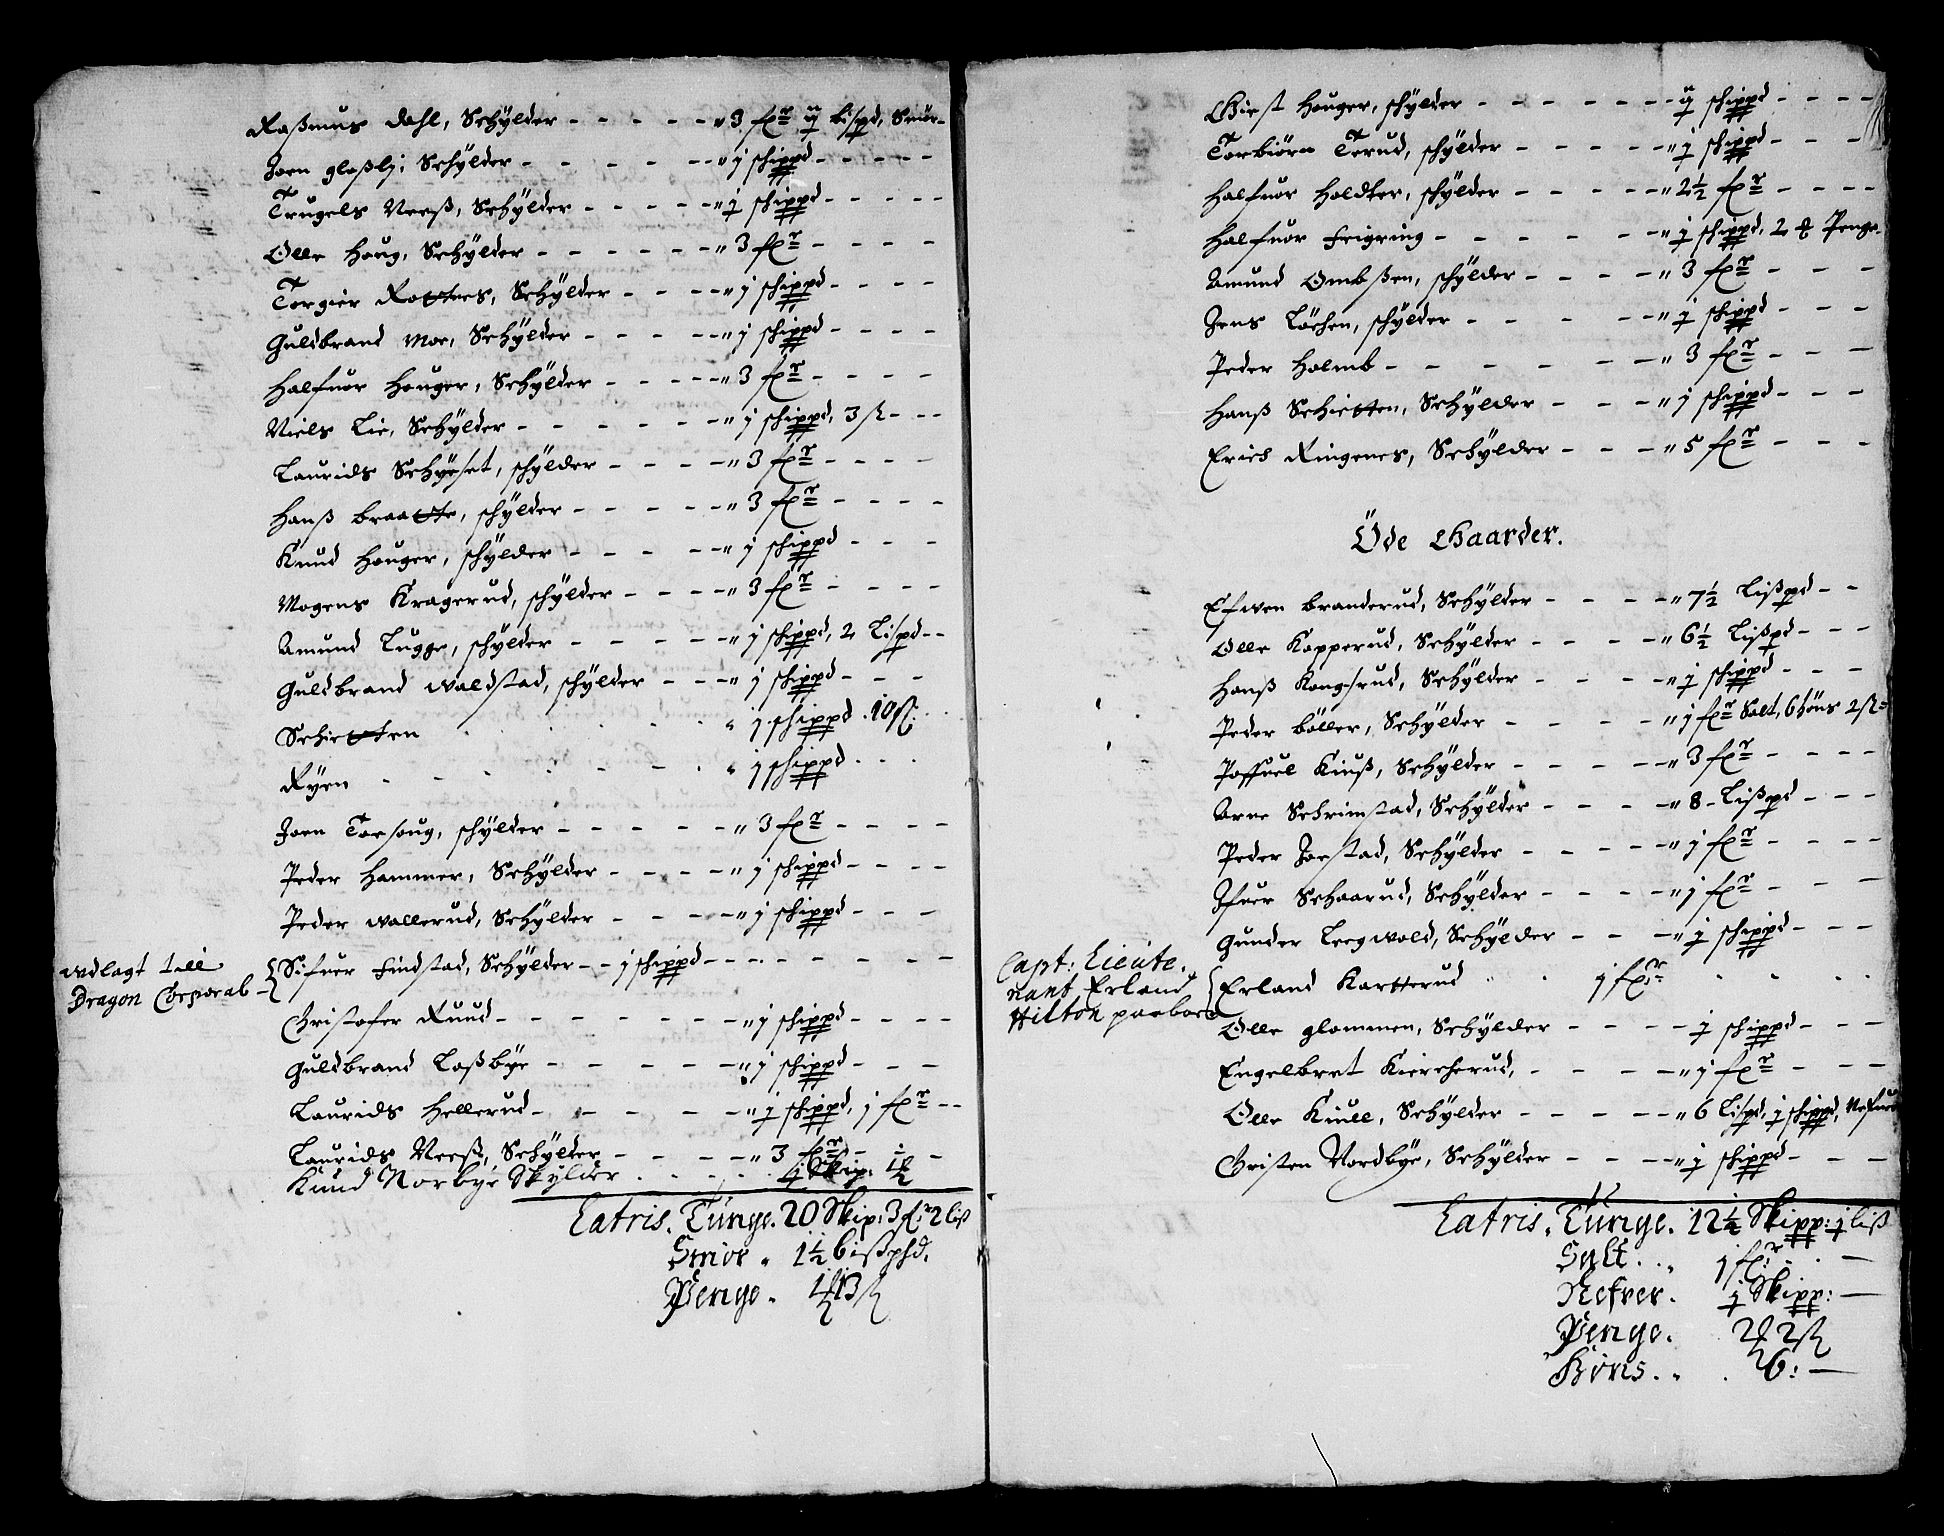 Raßmus Dahl, Schÿlder - - - - - " 3 fxr ÿ bispd, Smör -
Joen gloßlj: Schÿlder - - - - - " j schippd - - - -
Trugels Neeß, Schÿlder - - - - - " j schippd - - - -
Olle Houg, Schÿlder - - - - - " 3 fxr - - - -
Torgier Rottnes, Schÿlder - - - " j schippd - - - -
Guldbrand Moe, Schÿlder - - - - " j schippd - - - -
Halfuor Houger, Schÿlder - - - - " 3 fxr - - - -
Niels Lie, Schÿlder - - - - - " j schippd, 3 ß - - -
Laurids Schÿset, schÿlder - - - - " 3 fxr - - - -
Hanß braatte, schÿlder - - - - - " 3 fxr - - - -
Knud Houger, schÿlder - - - - - " j schippd - - -
Mogens Kragerud, schÿlder - - - - " 3 fxr - - - -
Amund Lugge, schÿlder - - - - " j schippd, 2 Lispd - -
Guldbrand Waldstad, schÿlder - - - " j schippd - - -
Schietten " j schippd . 10 ß.
Rÿen - - - - - " j schippd - - -
Joen Torsoug, schÿlder - - - - - " 3 fxr - - - -
Peder Hammer, Schÿlder - - - - " j schippd - - - -
Peder Wallerud, Schÿlder - - - - " j schippd - - -
Wdlagt till
Dragon Corporal -
Sifuer Findstad, Schÿlder - - j schippd - - - - - -
Christofer Ruud - - - - - - " j schippd - - - -
Guldbrand Loßbÿe - - - - - " j schippd - - -
Laurids Hellerud - - - - - " j schippd, j fxr - -
Laurids Neeß, Schÿlder - - - - " 3 fxr - - -
Knud Norbye Skylder . . . . . j Skip: 1 ß
Latris. Tunge. 20 Skip: 3 fr 2 liß
Smör " 1½ bißphd.
Penge " 13 ß
Giest Houger, schÿlder - - - - - - ÿ schippd - - - -
Torbiörn Terud, schÿlder - - - - - " j schippd - - -
Halfuor Holdter, schÿlder - - - - " 2½ fxr - - - -
Halfuor Frigring - - - - - " j schippd, 2 Penge
Amund Ombßen, schÿlder - - - - " 3 fxr - - -
Jens Löchen, schÿlder - - - - " j schippd - - -
Peder Holmb - - - - - " 3 fxr - - -
Hanß Schietten, Schÿlder - - - " j schippd - - -
Erich Ringenes, Schÿlder - - - " 5 fxr - - -
Öde Gaarder.
Efwen branderud, Schÿlder - - - - " 7½ Lißpd - -
Olle Kopperud, Schÿlder - - - - " 6½ Lißpd - - -
Hanß Kongsrud, Schÿlder - - - - " j schippd - - -
Peder böller, Schÿlder - - - - " j fxr Salt, 6 höns 2 ß
Poffuel Kiuß, Schÿlder - - - - " 3 fxr - - - -
Arne Schrimstad, Schÿlder - - - - " 8 - Lißpd - - -
Peder Joestad, Schÿlder - - - - " j fxr - - - -
Ifuer Schaarud, Schÿlder - - - - " j fxr - - -
Gunder Leegwold, Schÿlder - - - " j schippd - - -
Capt: Lieute.
nant Erland
Hilton paaboer
Erland Kortterud j fxr
Olle glommen, Schÿlder - - - - j schippd - - -
Engelbret Kiercherud, - - - - " j fxr - - -
Olle Kiull, Schÿlder - - - - " 6 Lispd, j schippd, Nefuer
Christen Nordbÿe, Schÿlder - - - " j schippd - - -
Latris. Tunge. 12½ Skipp: j liß
Sallt. . " j fxr . . -
Nefver. j Skipp: -
Penge. 2 2 ß
Höns. . " . 26: -